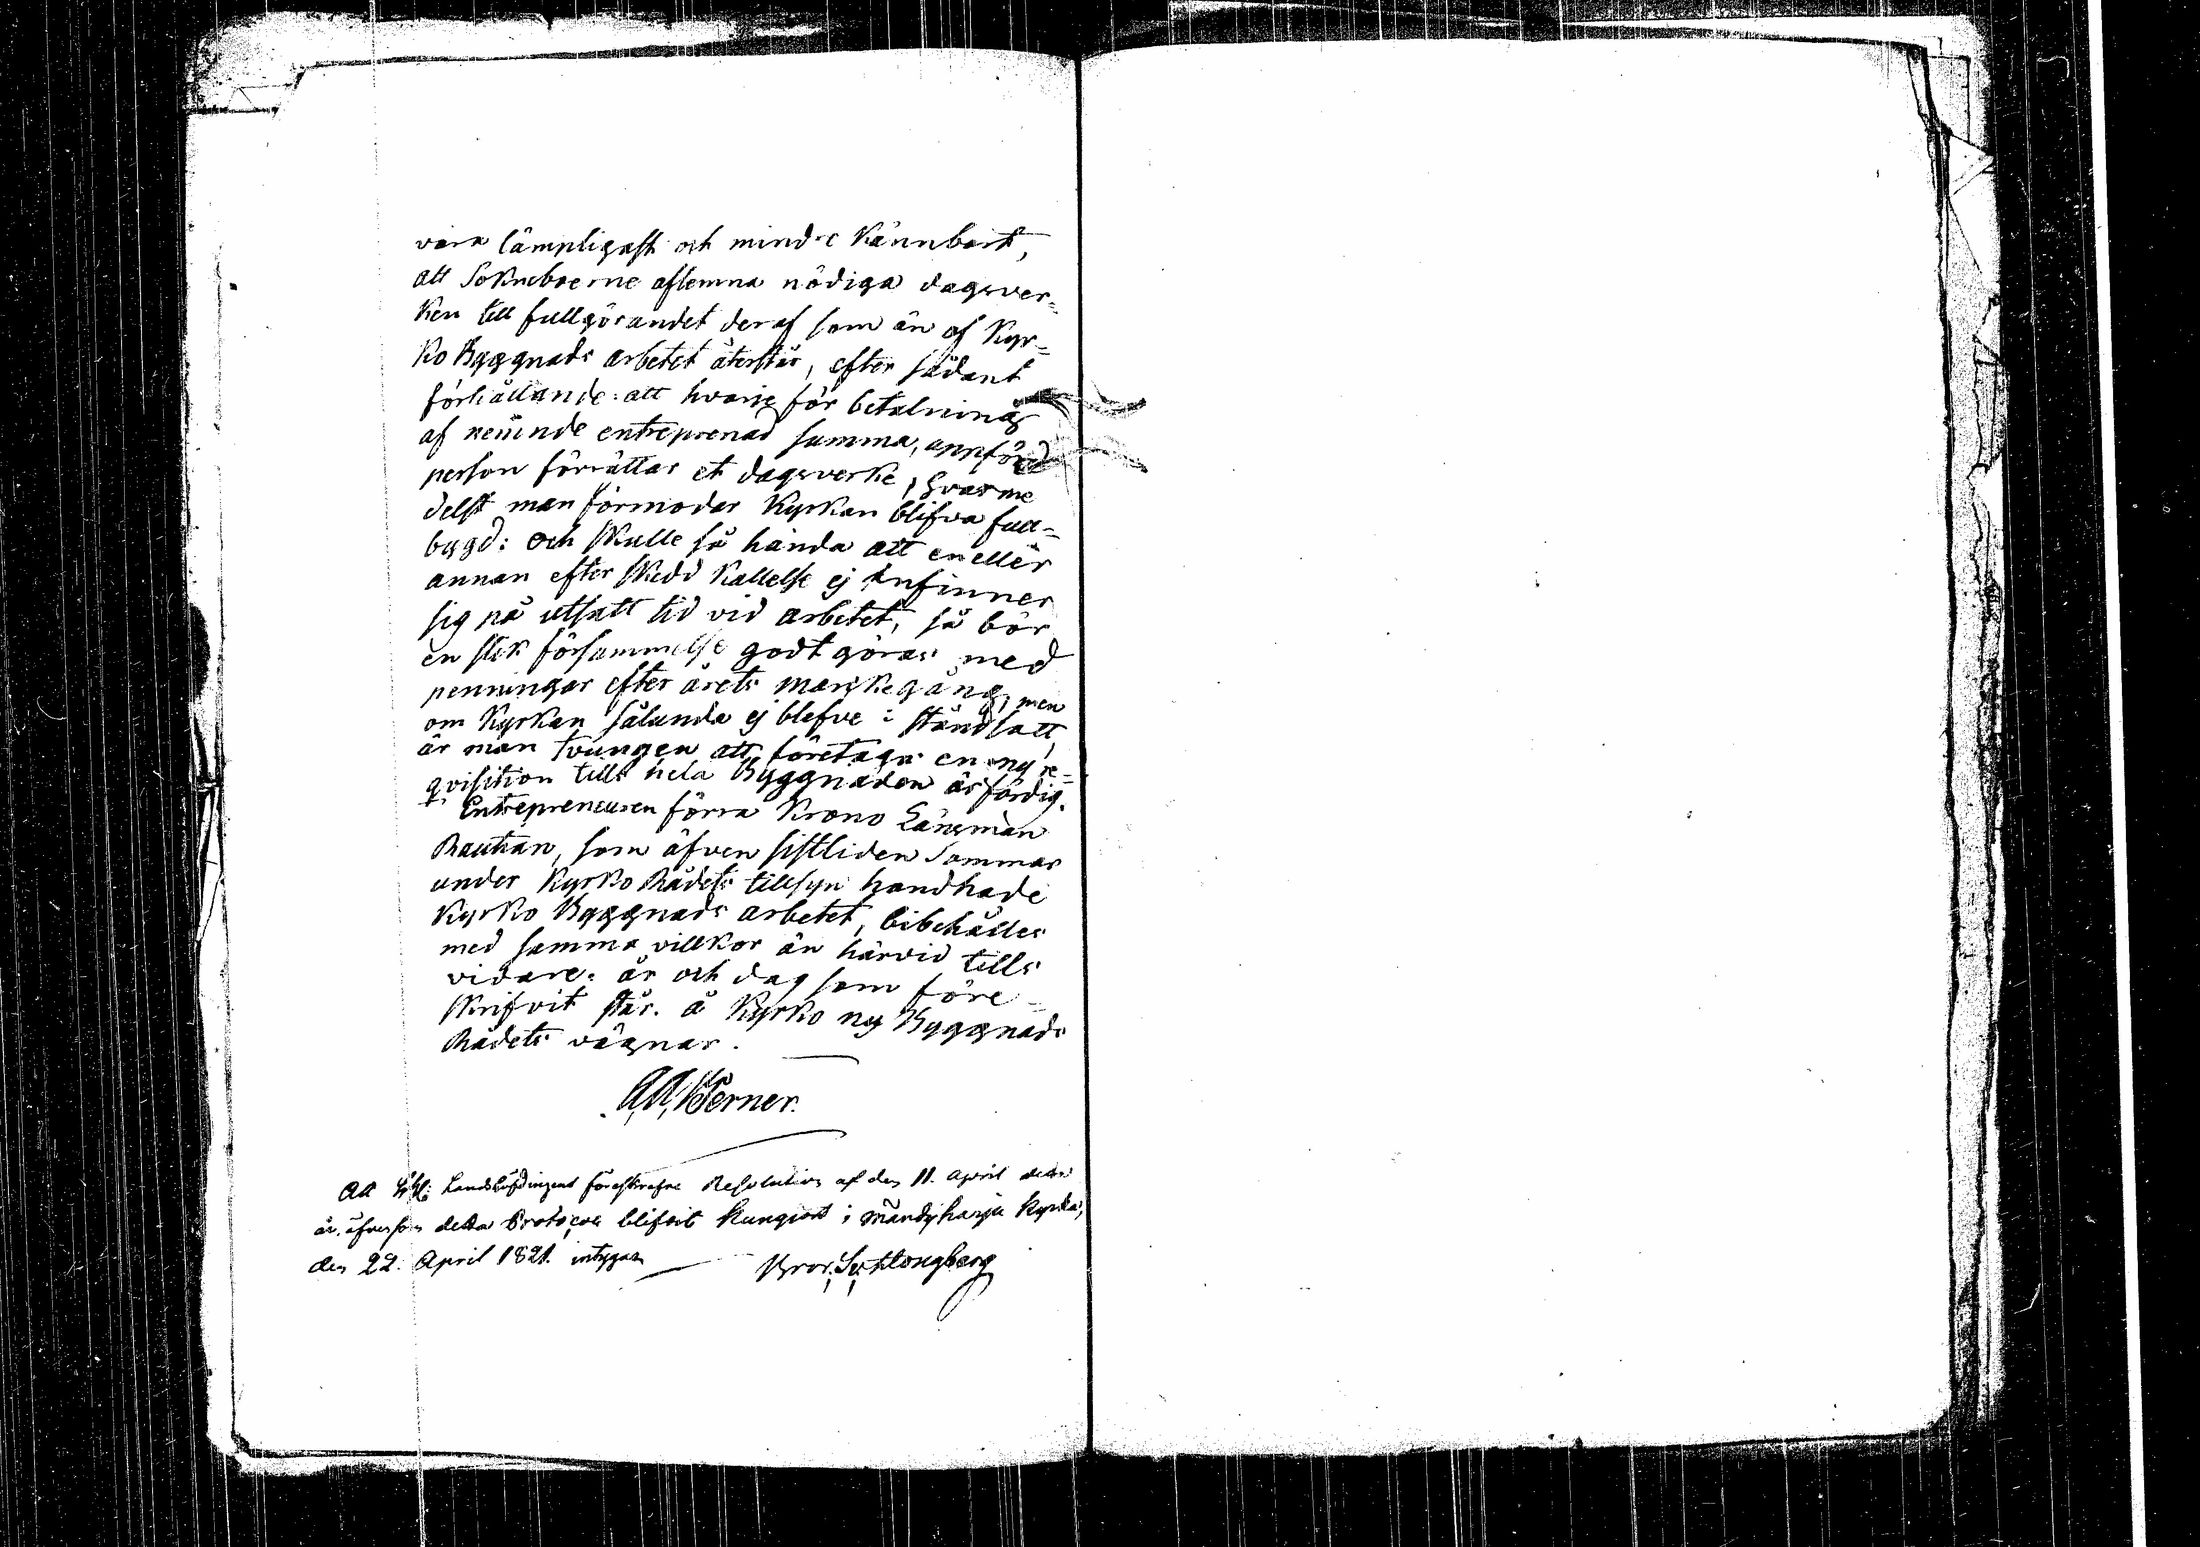 vara lämpligast och mindre kännbart,
att Sokneboerne aflemna nödiga dagsver=
ken till fullgörandet deraf som än af Kyr=
ko Byggnads arbetet återstår, efter sådant
förhållande: att hvarje för betalning
af nemnde entreprenad summa, uppförd
person förrättar et dagsverke, hvarme
delst man förmodar Kyrkan blifva full=
bygd: och skulle så hända att en eller
annan efter skedd kallelse ej infinner
sig på utsatt tid vid arbetet, så bör
en slik försummelse godtgöras med
penningar efter årets markegång, men
om Kyrkan sålunda ej blefve i ståndsatt,
är man tvungen att företaga en ny re=
qvisition tills hela Byggnaden är färdig.
Entrepreneuren förra Krono Länsman
Bauthan, som äfven sistliden Sommar
under Kyrko Rådets tillsyn handhade
Kyrko Byggnads arbetet, bibehålles
med samma villkor än härvid tills
vidare: år och dag som före=
skrifvit står. å Kyrko ny Byggnads
Rådets vägnar.
A.A. Werner.
Att Landshöfdingens föreskrefne Resolution af den 11. April detta
år. äfvensom detta Protocoll blifvit kungjort i Mändyharju kyrka,
den 22. April 1821. intygar
Bror.